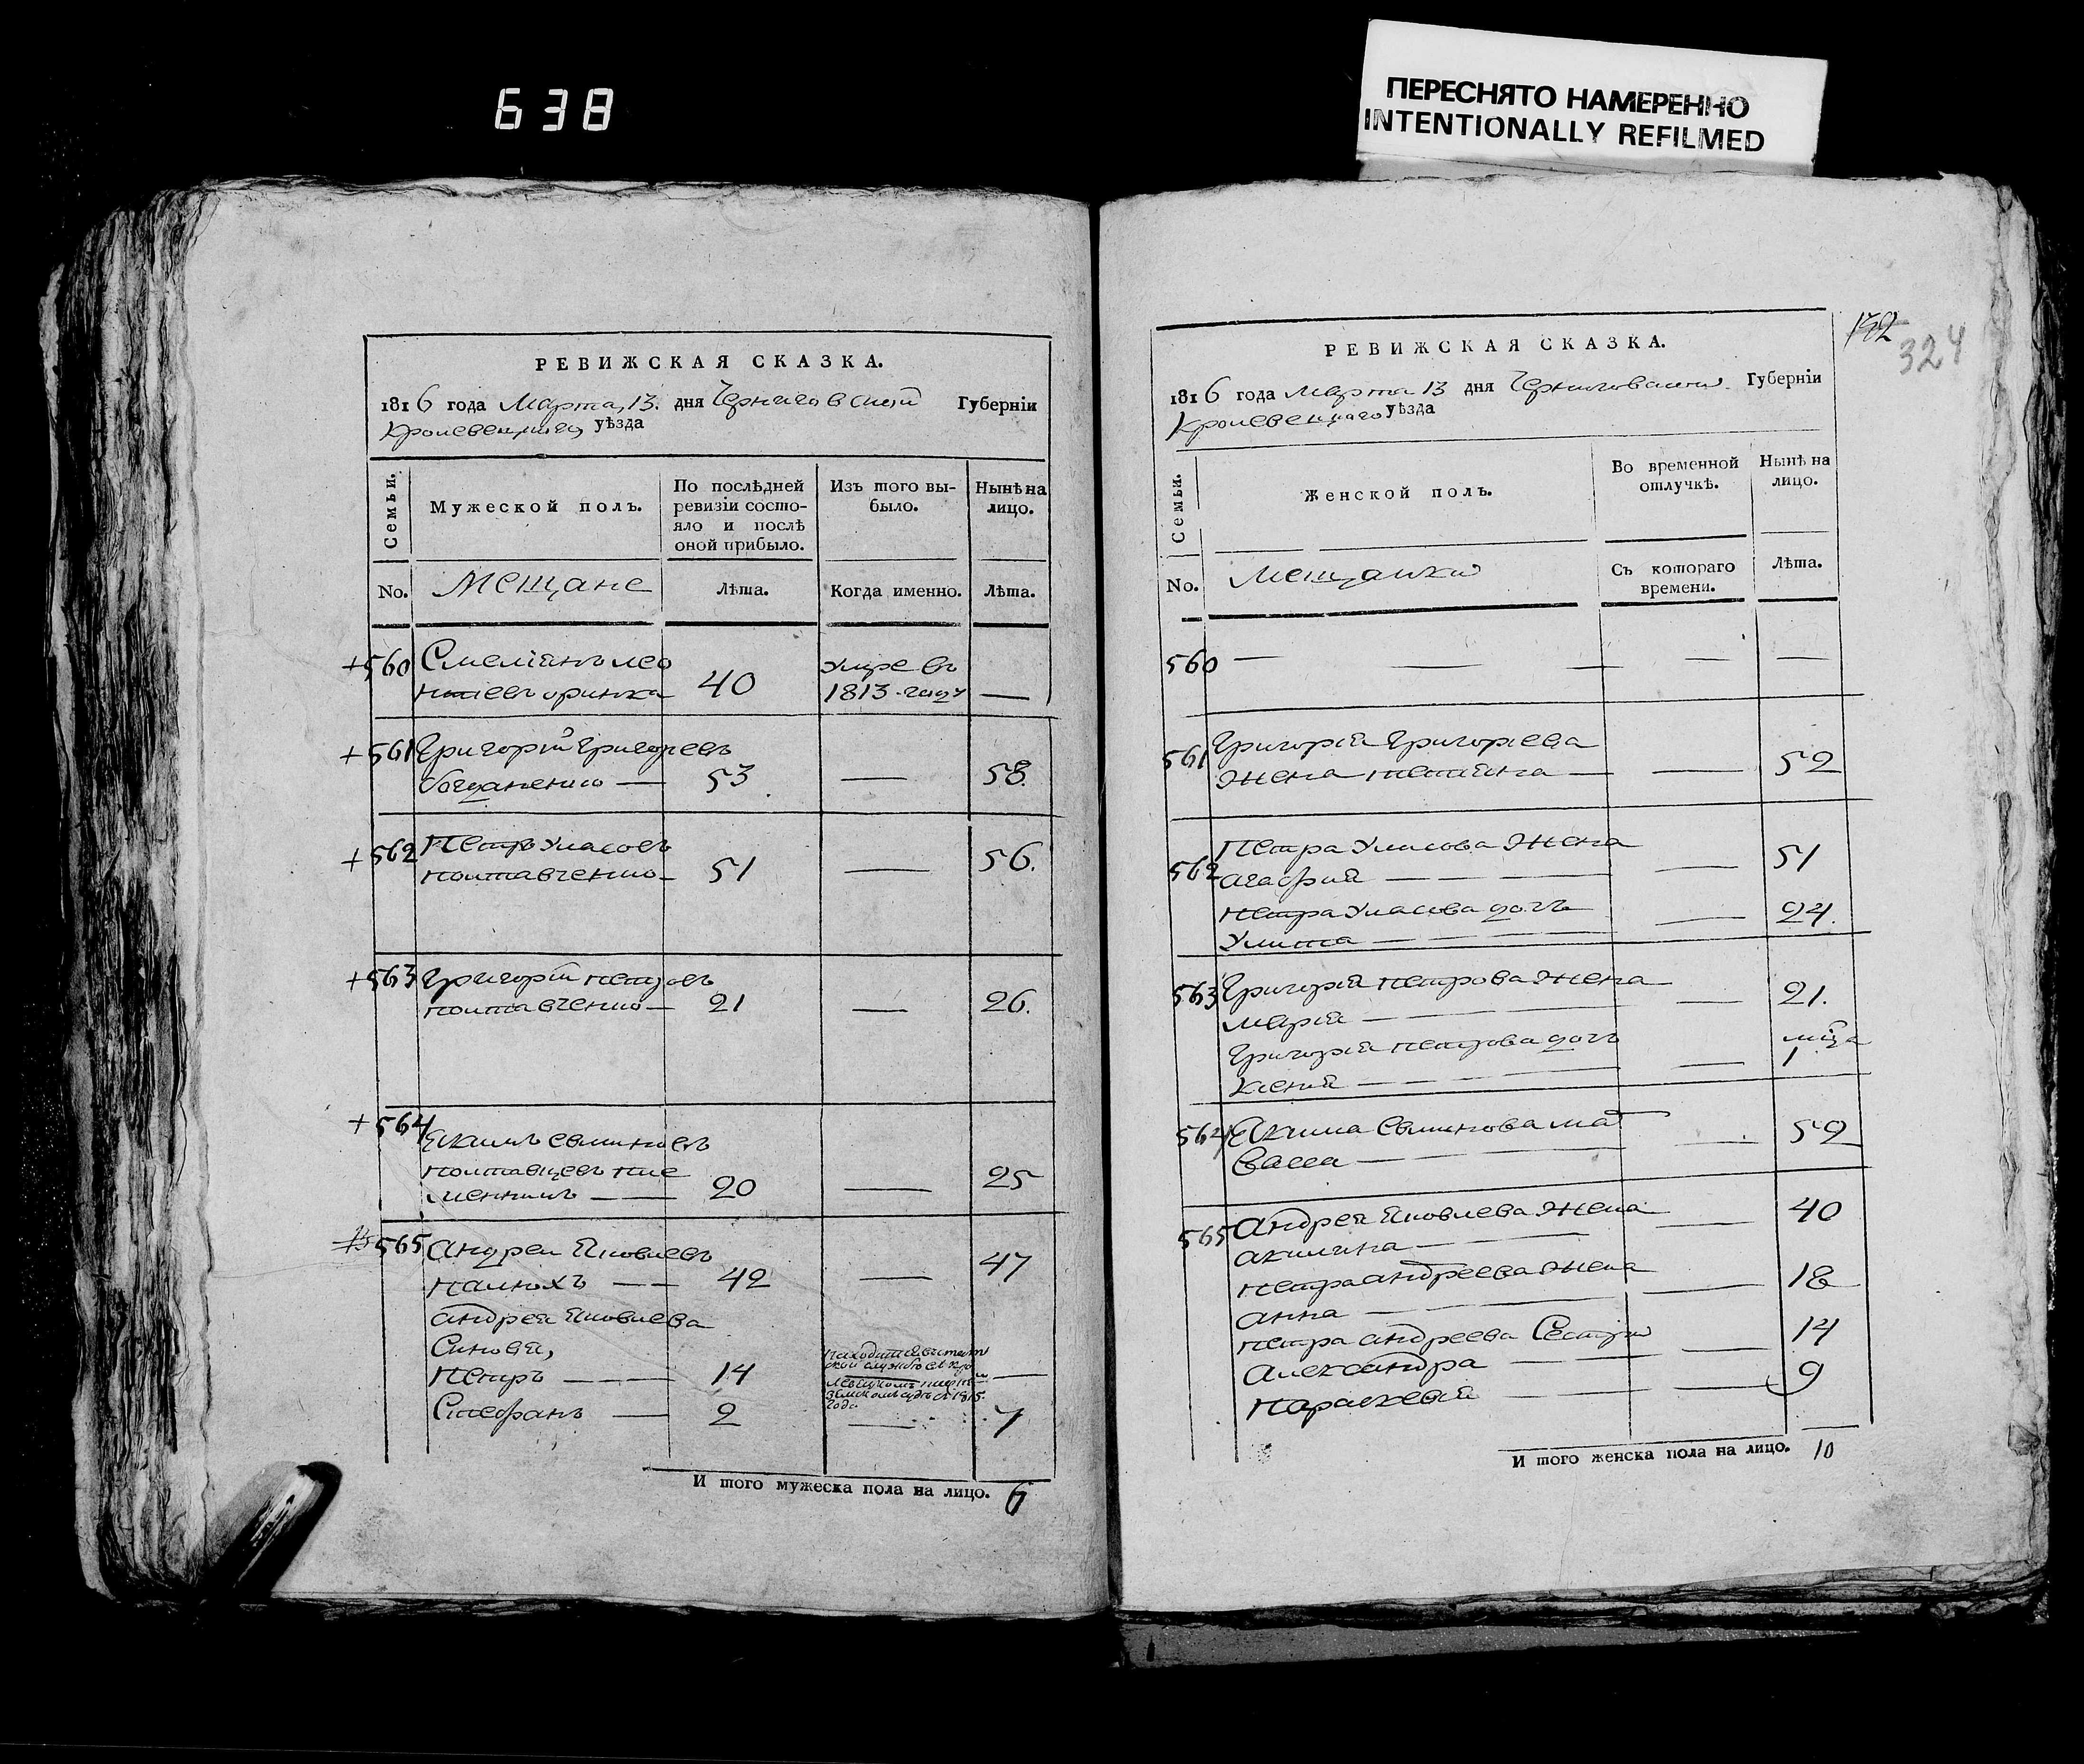 638
ПЕРЕСНЯТО НАМЕРЕННО
INTENTIONALLY REFILMED
РЕВИЖСКАЯ СКАЗКА.
1816 года Марта 13. дня Черниговской Губерніи
Кролевецкаго уѣзда
Семьи.
Мужеской полъ.
По послѣдней ревизіи состояло и послѣ оной прибыло.
Изъ того выбыло.
Нынѣ на лицо.
No.
Мещане
Лѣта.
Когда именно.
Лѣта.
+560
40
умре въ
1813 году —
+561 Григорій Григорьевъ
— 53 — 58.
+562 Петръ Уласовъ
полтавченко — 51 — 56.
+563 Григорій петровъ
полтавченко — 21 — 26.
+564 Якимъ
— 20 — 25
565 Андрей Яковлевъ
— 42 — 47
андрея Яковлева
Синовя,
Петръ — 14 —
Стефанъ — 2 — 7
И того мужеска пола на лицо. 6
132
324
РЕВИЖСКАЯ СКАЗКА.
1816 года Марта 13 дня Черниговской Губерніи
Кролевецкаго уѣзда
Семьи.
Женской полъ.
Во временной отлучкѣ.
Нынѣ на лицо.
No.
Мещанки
Съ котораго времени.
Лѣта.
560 — — — — —
561 Григорія Григорьева
жена — — 52
562 Петра Уласова жена
агафия — — 51
петра Уласова дочь
Улита — — 24.
563 Григорія петрова жена
марія — — 21.
Григорія петрова дочь
ксенія — — 1
564 Якима мат
Васса — — 52
565 Андрея Яковлева жена
акилина — — 40
петра андреева жена
анна — — 18
петра андреева Сестры
Александра — — 14
параскевия — — 9
И того женска пола на лицо. 10